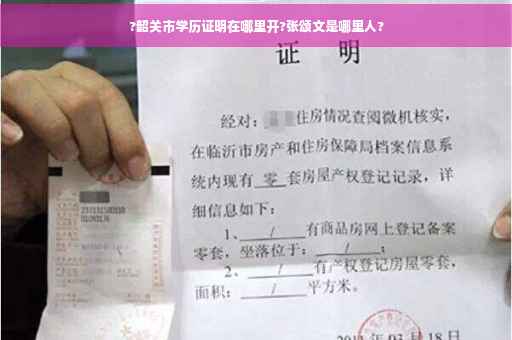 ?韶关市学历证明在哪里开?张颂文是哪里人?
证 明
经对：住房情况查阅微机核实，
在临沂市房产和住房保障局档案信息系
统内现有 零 套房屋产权登记记录，详
细信息如下：
1、 / 有商品房网上登记备案
零套，坐落位于： / ；
2、 / 有产权登记房屋零套，
面积： / 平方米。